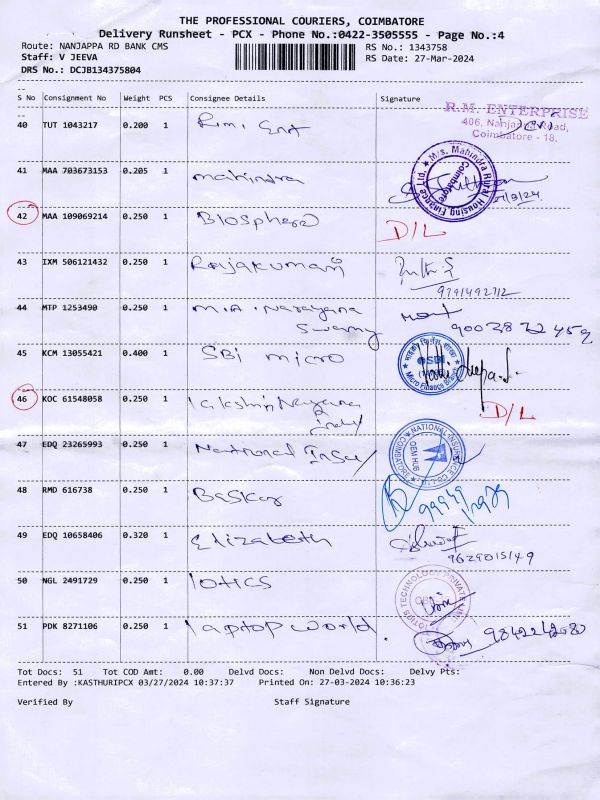 THE PROFESSIONAL COURIERS, COIMBATORE
Delivery Runsheet - PCX - Phone No.:0422-3505555 - Page No.:4
Route: NANJAPPA RD BANK CMS
RS No.: 1343758
Staff: V JEEVA
RS Date: 27-Mar-2024
DRS No.: DCJB134375804
S No Consignment No Weight PCS Consignee Details Signature
R.M. ENTERPRISE
406, Nanjappa Road,
Coimbatore - 18.
40 TUT 1043217 0.200 1
41 MAA 703673153 0.205 1 mahindra
M/s. Mahindra Rural Housing Finance Ltd.
Coimbatore
42 MAA 109069214 0.250 1 Biosphere D/L
43 IXM 506121432 0.250 1 Rajakumari
9791492712
44 MTP 1253490 0.250 1 M.A. Narayana
Swamy
45 KCM 13055421 0.400 1 SBI micro
SBI
Micro Finance Branch
46 KOC 61548058 0.250 1 D/L
47 EDQ 23265993 0.250 1 National Insu/
NATIONAL INSURANCE CO. LTD.
OEM HUB
COIMBATORE
48 RMD 616738 0.250 1 Baskar
49 EDQ 10658406 0.320 1 Elizabeth
9629015149
50 NGL 2491729 0.250 1 iotics
51 PDK 8271106 0.250 1 laptop world.
Tot Docs: 51 Tot COD Amt: 0.00 Delvd Docs: Non Delvd Docs: Delvy Pts:
Entered By :KASTHURIPCX 03/27/2024 10:37:37 Printed On: 27-03-2024 10:36:23
Verified By Staff Signature